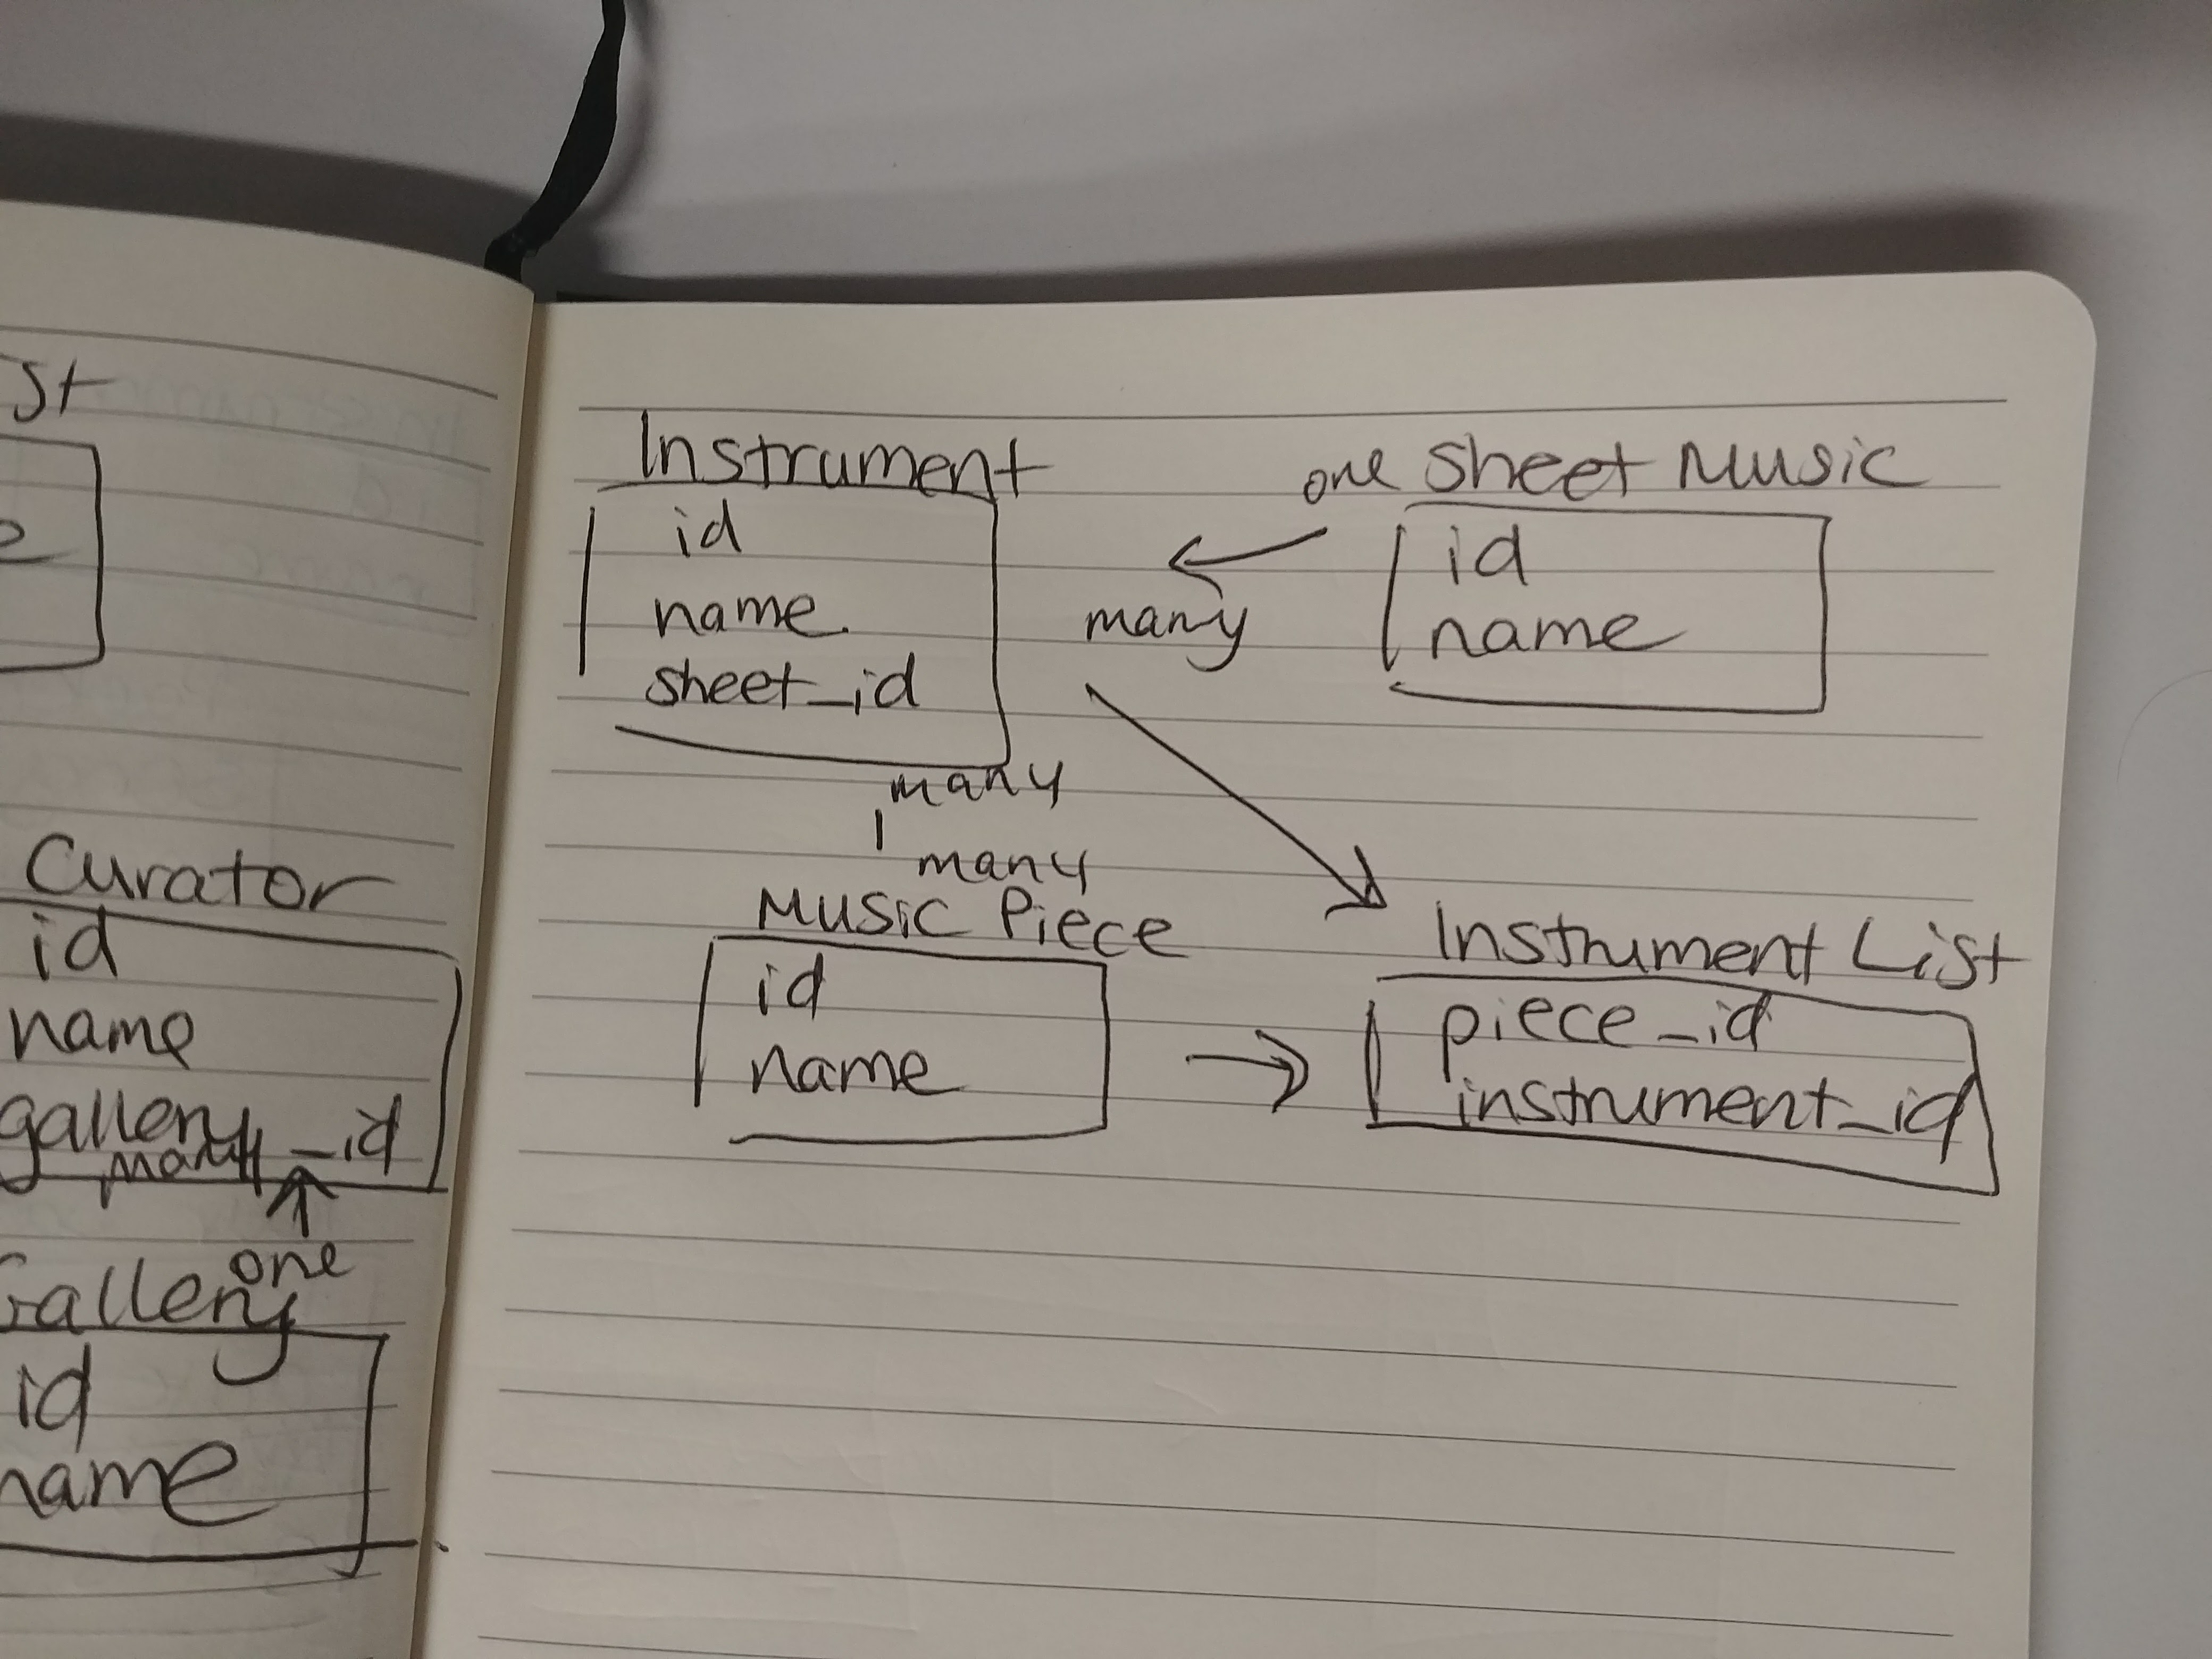 st
e
Curator
id
name
gallery_id
many
one
Gallery
id
name
Instrument
id
name
sheet_id
many
one Sheet Music
id
name
many
many
Music Piece
id
name
Instrument List
piece_id
instrument_id